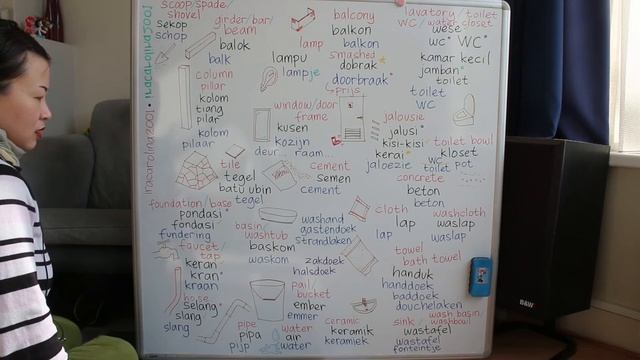 iracarolina2001 • iracarolina2001
scoop/spade/
shovel
sekop
schop
girder/bar/
beam
balok
balk
column
pillar
kolom
tiang
pilar
kolom
pilaar
tile
tegel
batu ubin
tegel
foundation/base
pondasi
fondasi
fundering
faucet/
tap
keran
kran
kraan
hose
selang
slang
slang
lamp
lampu
lampje
window/door
frame
kusen
kozijn
deur... raam...
cement
semen
cement
basin
washtub
baskom
waskom
pail/
bucket
ember
emmer
pipe
pipa
pijp
water
air
water
balcony
balkon
balkon
smashed
dobrak
doorbraak
prijs
jalousie
jalusi
kisi-kisi
kerai
jaloezie
concrete
beton
beton
washand
gastendoek
strandlaken
zakdoek
halsdoek
cloth
lap
lap
washcloth
waslap
waslap
towel
bath towel
handuk
handdoek
baddoek
douchelaken
ceramic
keramik
keramiek
sink
wash basin/
washbowl
wastafel
wastafel
fonteintje
lavatory/toilet
WC/water closet
wese
wc WC
kamar kecil
jamban
toilet
toilet
WC
toilet bowl
kloset
wc pot
toilet
B&W